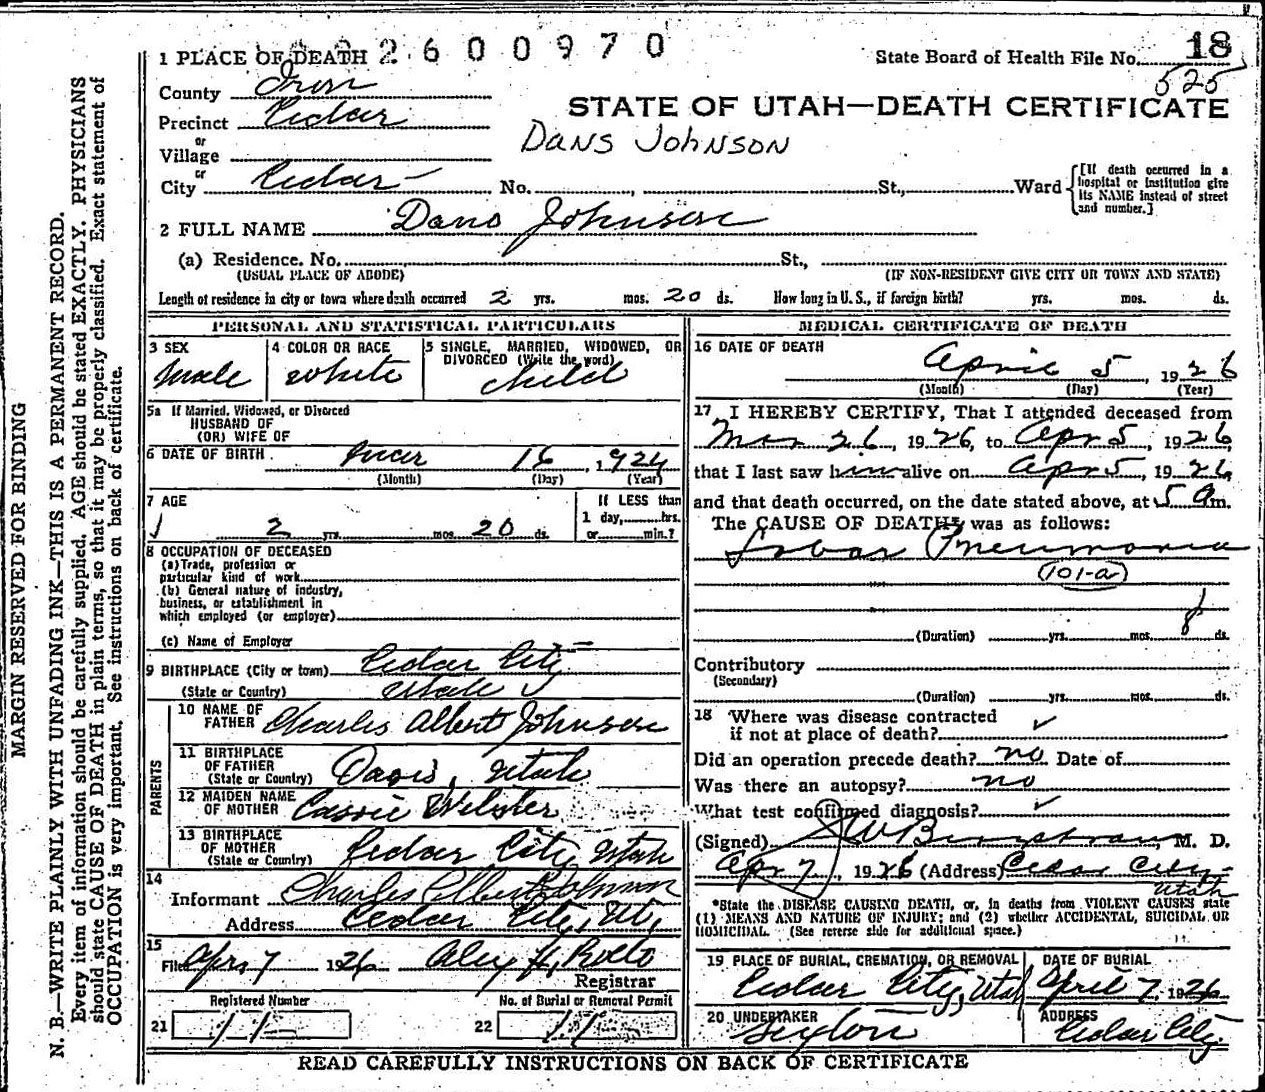 1 PLACE OF DEATH 2600970 State Board of Health File No. 18
525
County Iron
STATE OF UTAH—DEATH CERTIFICATE
Precinct Cedar
or
Village
Dans Johnson
or
City Cedar No. , St., Ward
[If death occurred in a hospital or institution give its NAME instead of street and number.]
2 FULL NAME Dans Johnson
(a) Residence. No. St.,
(USUAL PLACE OF ABODE) (IF NON-RESIDENT GIVE CITY OR TOWN AND STATE)
Length of residence in city or town where death occurred 2 yrs. mos. 20 ds. How long in U. S., if foreign birth? yrs. mos. ds.
PERSONAL AND STATISTICAL PARTICULARS
3 SEX 4 COLOR OR RACE 5 SINGLE, MARRIED, WIDOWED, OR
DIVORCED (Write the word)
Male white child
5a If Married, Widowed, or Divorced
HUSBAND OF
(OR) WIFE OF
6 DATE OF BIRTH 16, 1924
(Month) (Day) (Year)
7 AGE If LESS than
2 yrs. mos. 20 ds. 1 day, hrs.
or min.?
8 OCCUPATION OF DECEASED
(a) Trade, profession or
particular kind of work
(b) General nature of industry,
business, or establishment in
which employed (or employer)
(c) Name of Employer
9 BIRTHPLACE (City or town) Cedar City
(State or Country) Utah
PARENTS
10 NAME OF
FATHER Charles Albert Johnson
11 BIRTHPLACE
OF FATHER
(State or Country) Utah
12 MAIDEN NAME
OF MOTHER Cassie Webster
13 BIRTHPLACE
OF MOTHER
(State or Country) Cedar City Utah
14
Informant Charles Albert Johnson
Address Cedar City, Ut.
15
Filed Apr 7 1926 Alex H. Rollo
Registrar
Registered Number No. of Burial or Removal Permit
21 11 22 11
MEDICAL CERTIFICATE OF DEATH
16 DATE OF DEATH
April 5, 1926
(Month) (Day) (Year)
17 I HEREBY CERTIFY, That I attended deceased from
Mar 26, 1926, to Apr 5, 1926
that I last saw him alive on Apr 5, 1926
and that death occurred, on the date stated above, at 5 a m.
The CAUSE OF DEATH* was as follows:
Lobar Pneumonia
(101-a)
8
(Duration) yrs. mos. ds.
Contributory
(Secondary)
(Duration) yrs. mos. ds.
18 Where was disease contracted
if not at place of death? ✓
Did an operation precede death? no Date of
Was there an autopsy? no
What test confirmed diagnosis? ✓
(Signed) M. D.
Apr 7, 1926 (Address) Cedar City
Utah
*State the DISEASE CAUSING DEATH, or, in deaths from VIOLENT CAUSES state
(1) MEANS AND NATURE OF INJURY; and (2) whether ACCIDENTAL, SUICIDAL OR
HOMICIDAL. (See reverse side for additional space.)
19 PLACE OF BURIAL, CREMATION, OR REMOVAL DATE OF BURIAL
Cedar City, Utah April 7, 1926
20 UNDERTAKER ADDRESS
Sexton Cedar City
READ CAREFULLY INSTRUCTIONS ON BACK OF CERTIFICATE
MARGIN RESERVED FOR BINDING
N. B.—WRITE PLAINLY WITH UNFADING INK—THIS IS A PERMANENT RECORD.
Every item of information should be carefully supplied. AGE should be stated EXACTLY. PHYSICIANS
should state CAUSE OF DEATH in plain terms, so that it may be properly classified. Exact statement of
OCCUPATION is very important. See instructions on back of certificate.